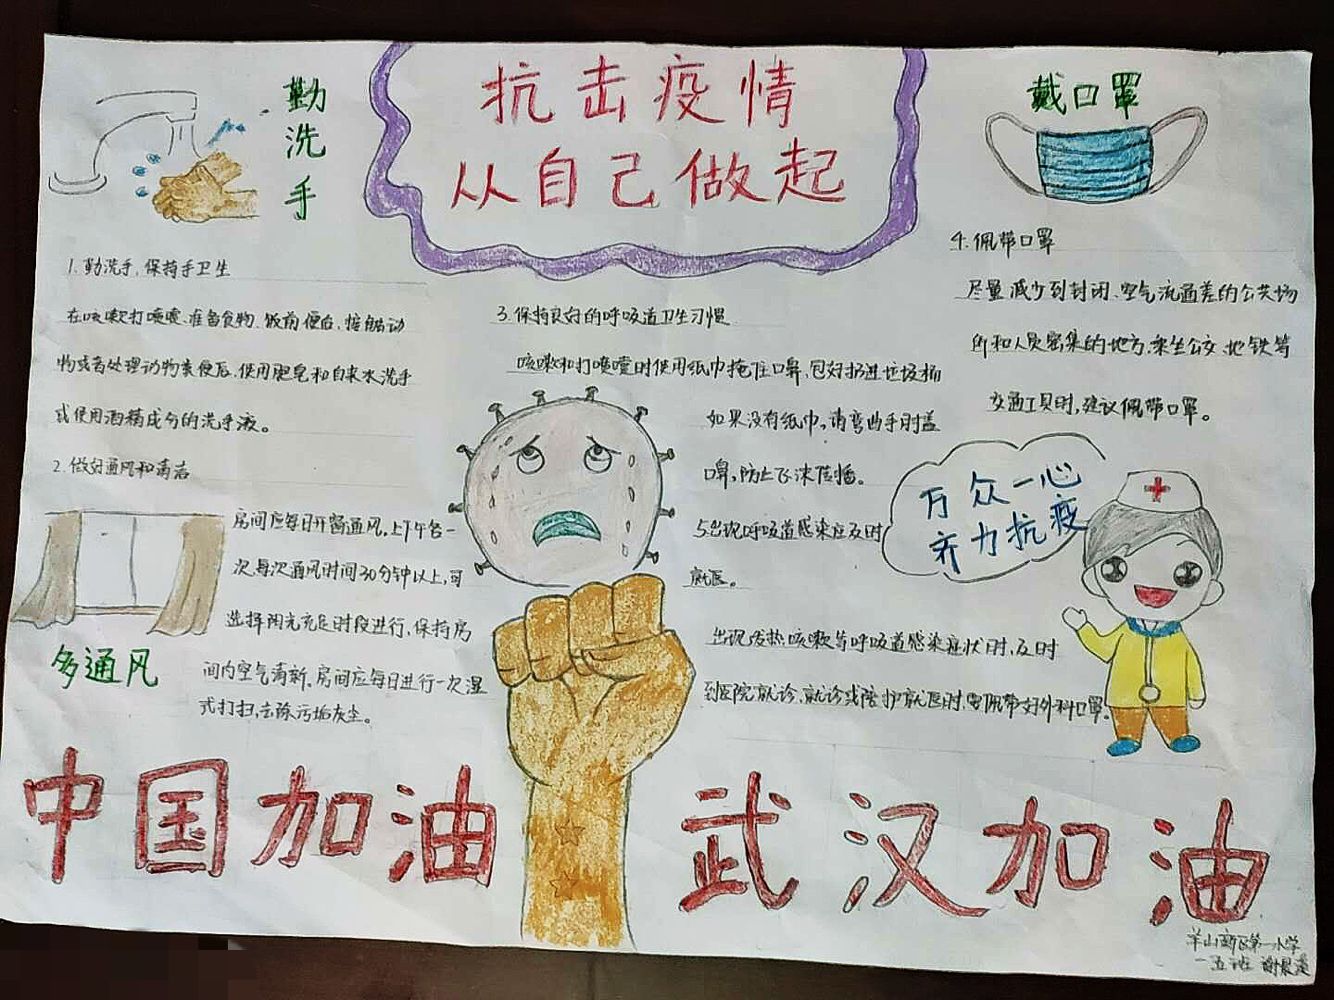 抗击疫情
从自己做起
勤洗手
戴口罩
1. 勤洗手,保持手卫生
在咳嗽打喷嚏、准备食物、饭前便后、接触动
物或者处理动物粪便后,使用肥皂和自来水洗手
或使用酒精成分的洗手液。
2. 做好通风和清洁
房间应每日开窗通风。上下午各一
次,每次通风时间30分钟以上,可
选择阳光充足时段进行,保持房
间内空气清新。房间应每日进行一次湿
式打扫,去除污垢灰尘。
多通风
3. 保持良好的呼吸道卫生习惯
咳嗽和打喷嚏时使用纸巾掩住口鼻,包好扔进垃圾桶
如果没有纸巾,请弯曲手肘盖
口鼻,防止飞沫传播。
5.出现呼吸道感染应及时
就医。
出现发热咳嗽等呼吸道感染症状时,及时
到医院就诊、就诊或陪护就医时,要佩带好外科口罩。
4. 佩带口罩
尽量减少到封闭、空气流通差的公共场
所和人员密集的地方,乘坐公交、地铁等
交通工具时,建议佩带口罩。
万众一心
齐力抗疫
中国加油
武汉加油
羊山新区第一小学
一五班 谢